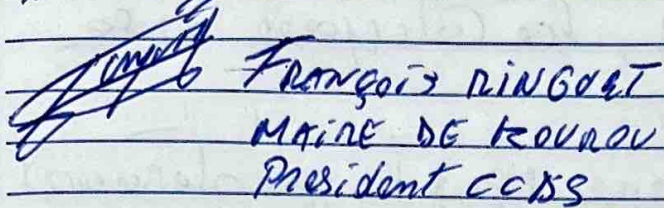 François RINGUET
MAIRE DE KOUROU
Président CCDS